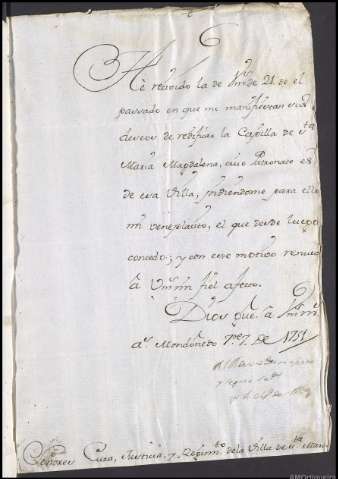 He reciuido la de Vm.s de 21. de el
passado en que me manifiestan sus
deseos de redificar la Capilla de S.ta
Maria Magdalena, cuio Patronato es
de esa Villa, pidiendome para ello
mi veneplacito, el que desde luego
concedo; y con este motivo renuevo
â Vmm. fiel afecto.
Dios gue. â Vm.s m.s
a.s Mondoñedo 7re 7. de 1751
Señores Cura, Justicia, y Regim.to de la Villa de S.ta Mar.
AMOrtigueira